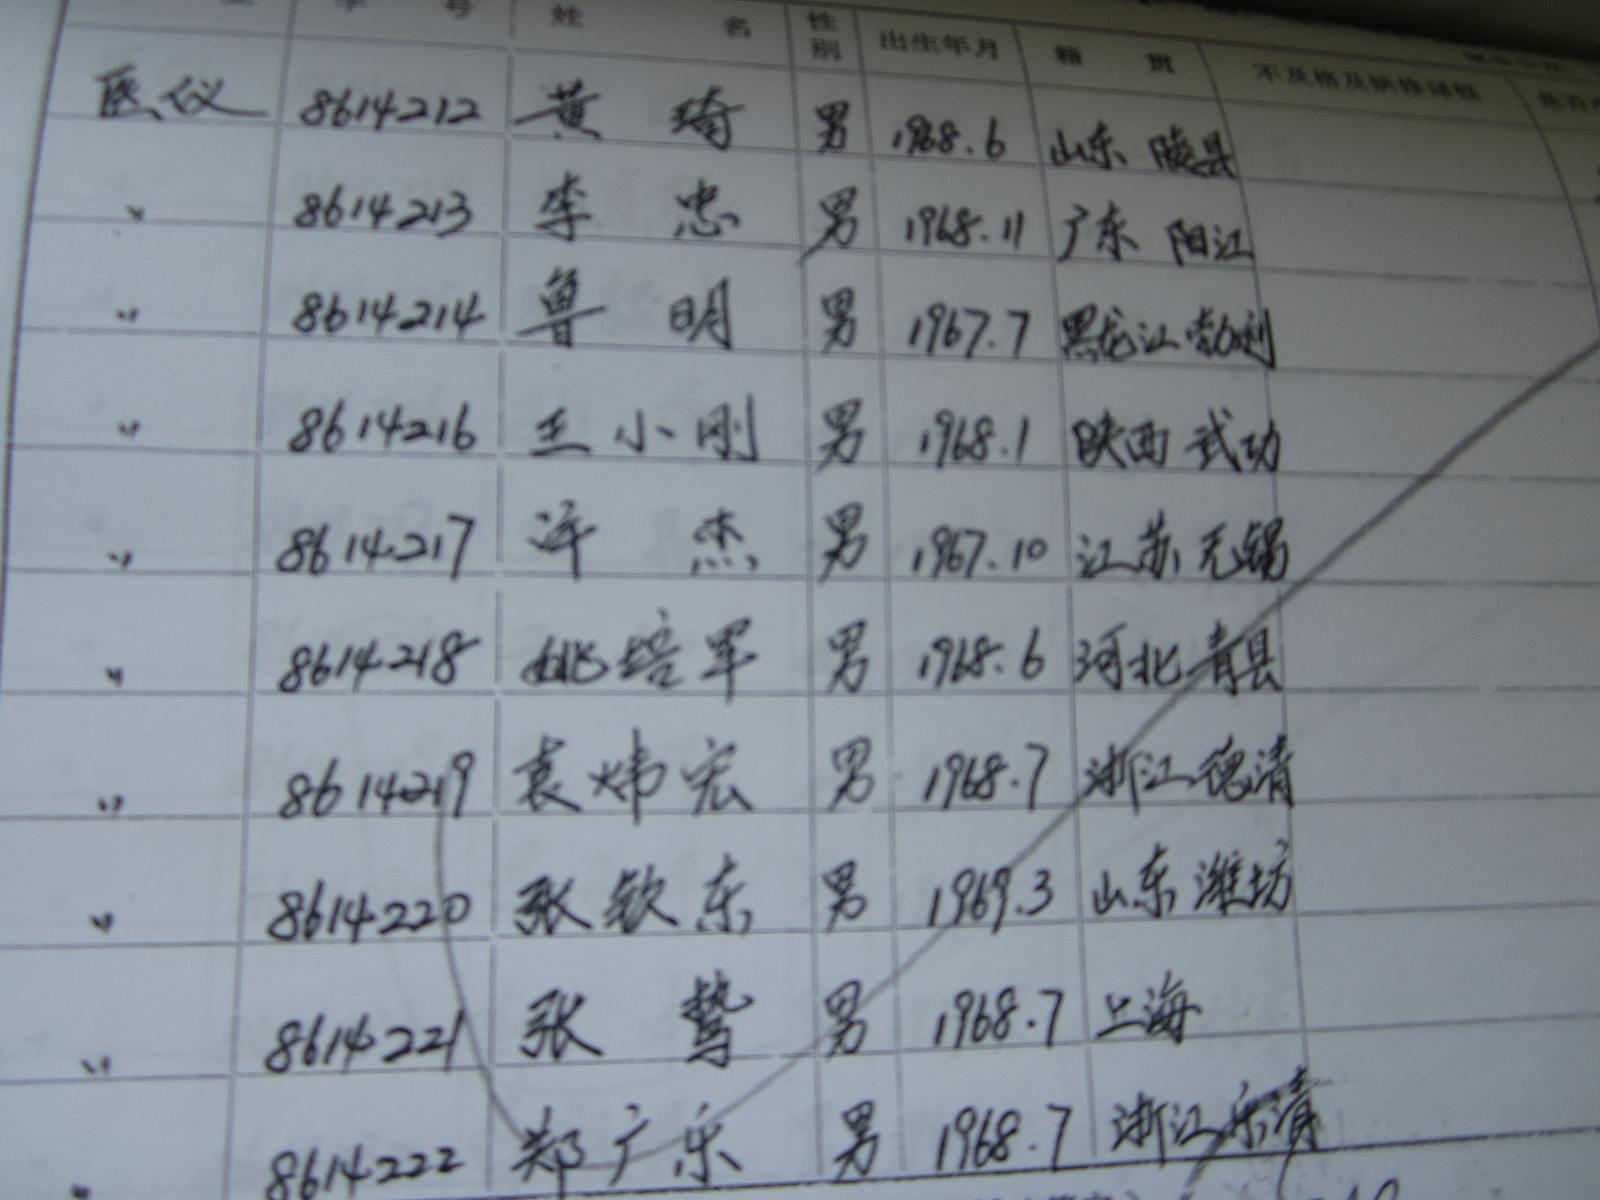 业 学 号 姓 名 性别 出生年月 籍 贯 不及格及缺修课程 是否
医仪 8614212 黄琦 男 1968.6 山东 陵县
〃 8614213 李忠 男 1968.11 广东 阳江
〃 8614214 鲁明 男 1967.7 黑龙江勃利
〃 8614216 王小刚 男 1968.1 陕西 武功
〃 8614217 许杰 男 1967.10 江苏 无锡
〃 8614218 姚培军 男 1968.6 河北 青县
〃 8614219 袁炜宏 男 1968.7 浙江德清
〃 8614220 张钦东 男 1969.3 山东 潍坊
〃 8614221 张鸷 男 1968.7 上海
〃 8614222 郑广乐 男 1968.7 浙江乐清